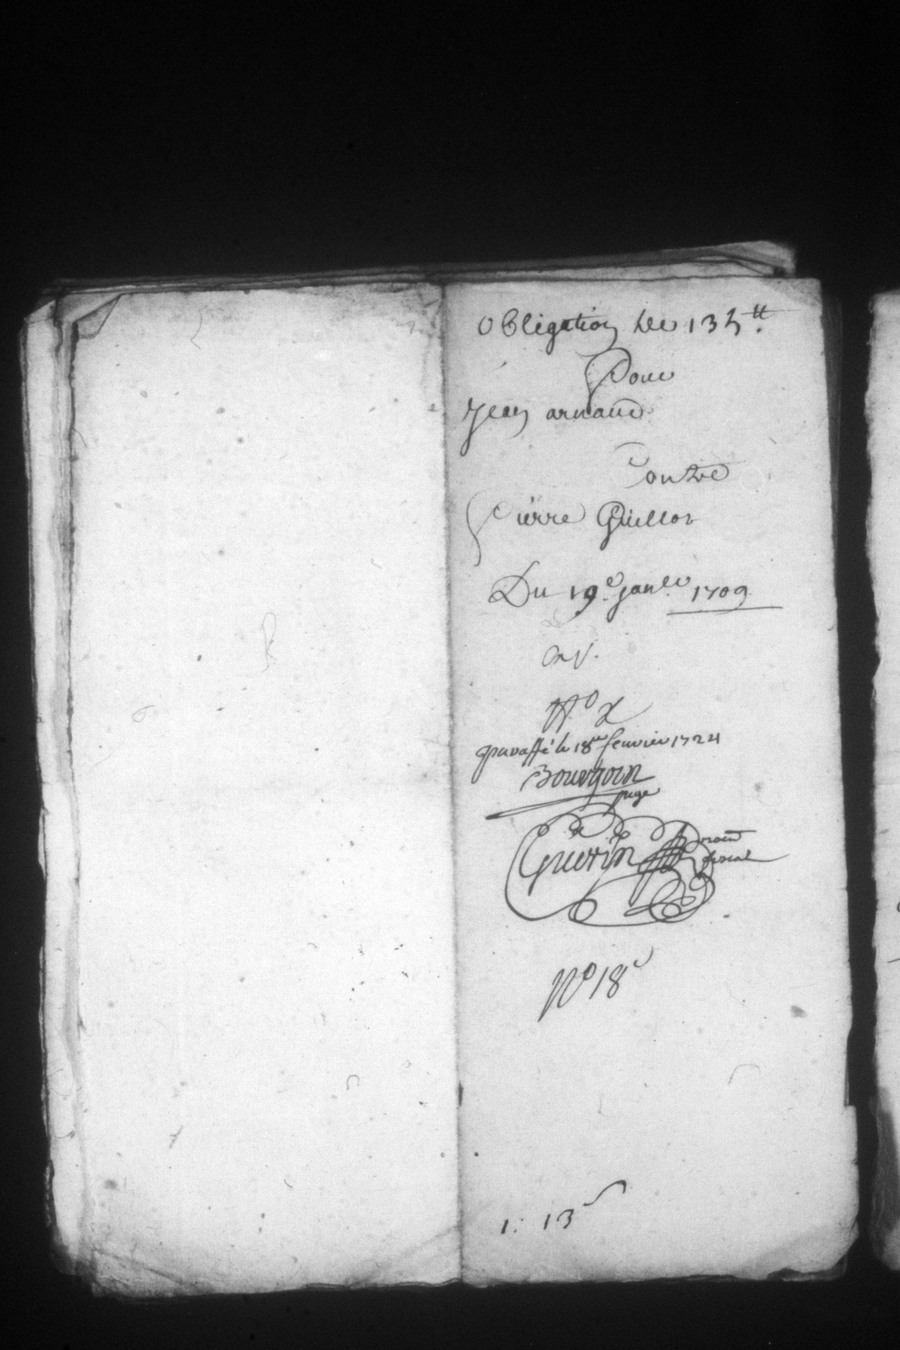 obligation de 135tt.
Pour
Jean arnaud
Contre
Pierre Guillot
Du 19e. janer 1709
inv.
No
paraffé le 18e feuvrier 1724
Bourgoin
juge
Guerin
fiscal
No 18e
1. 13s